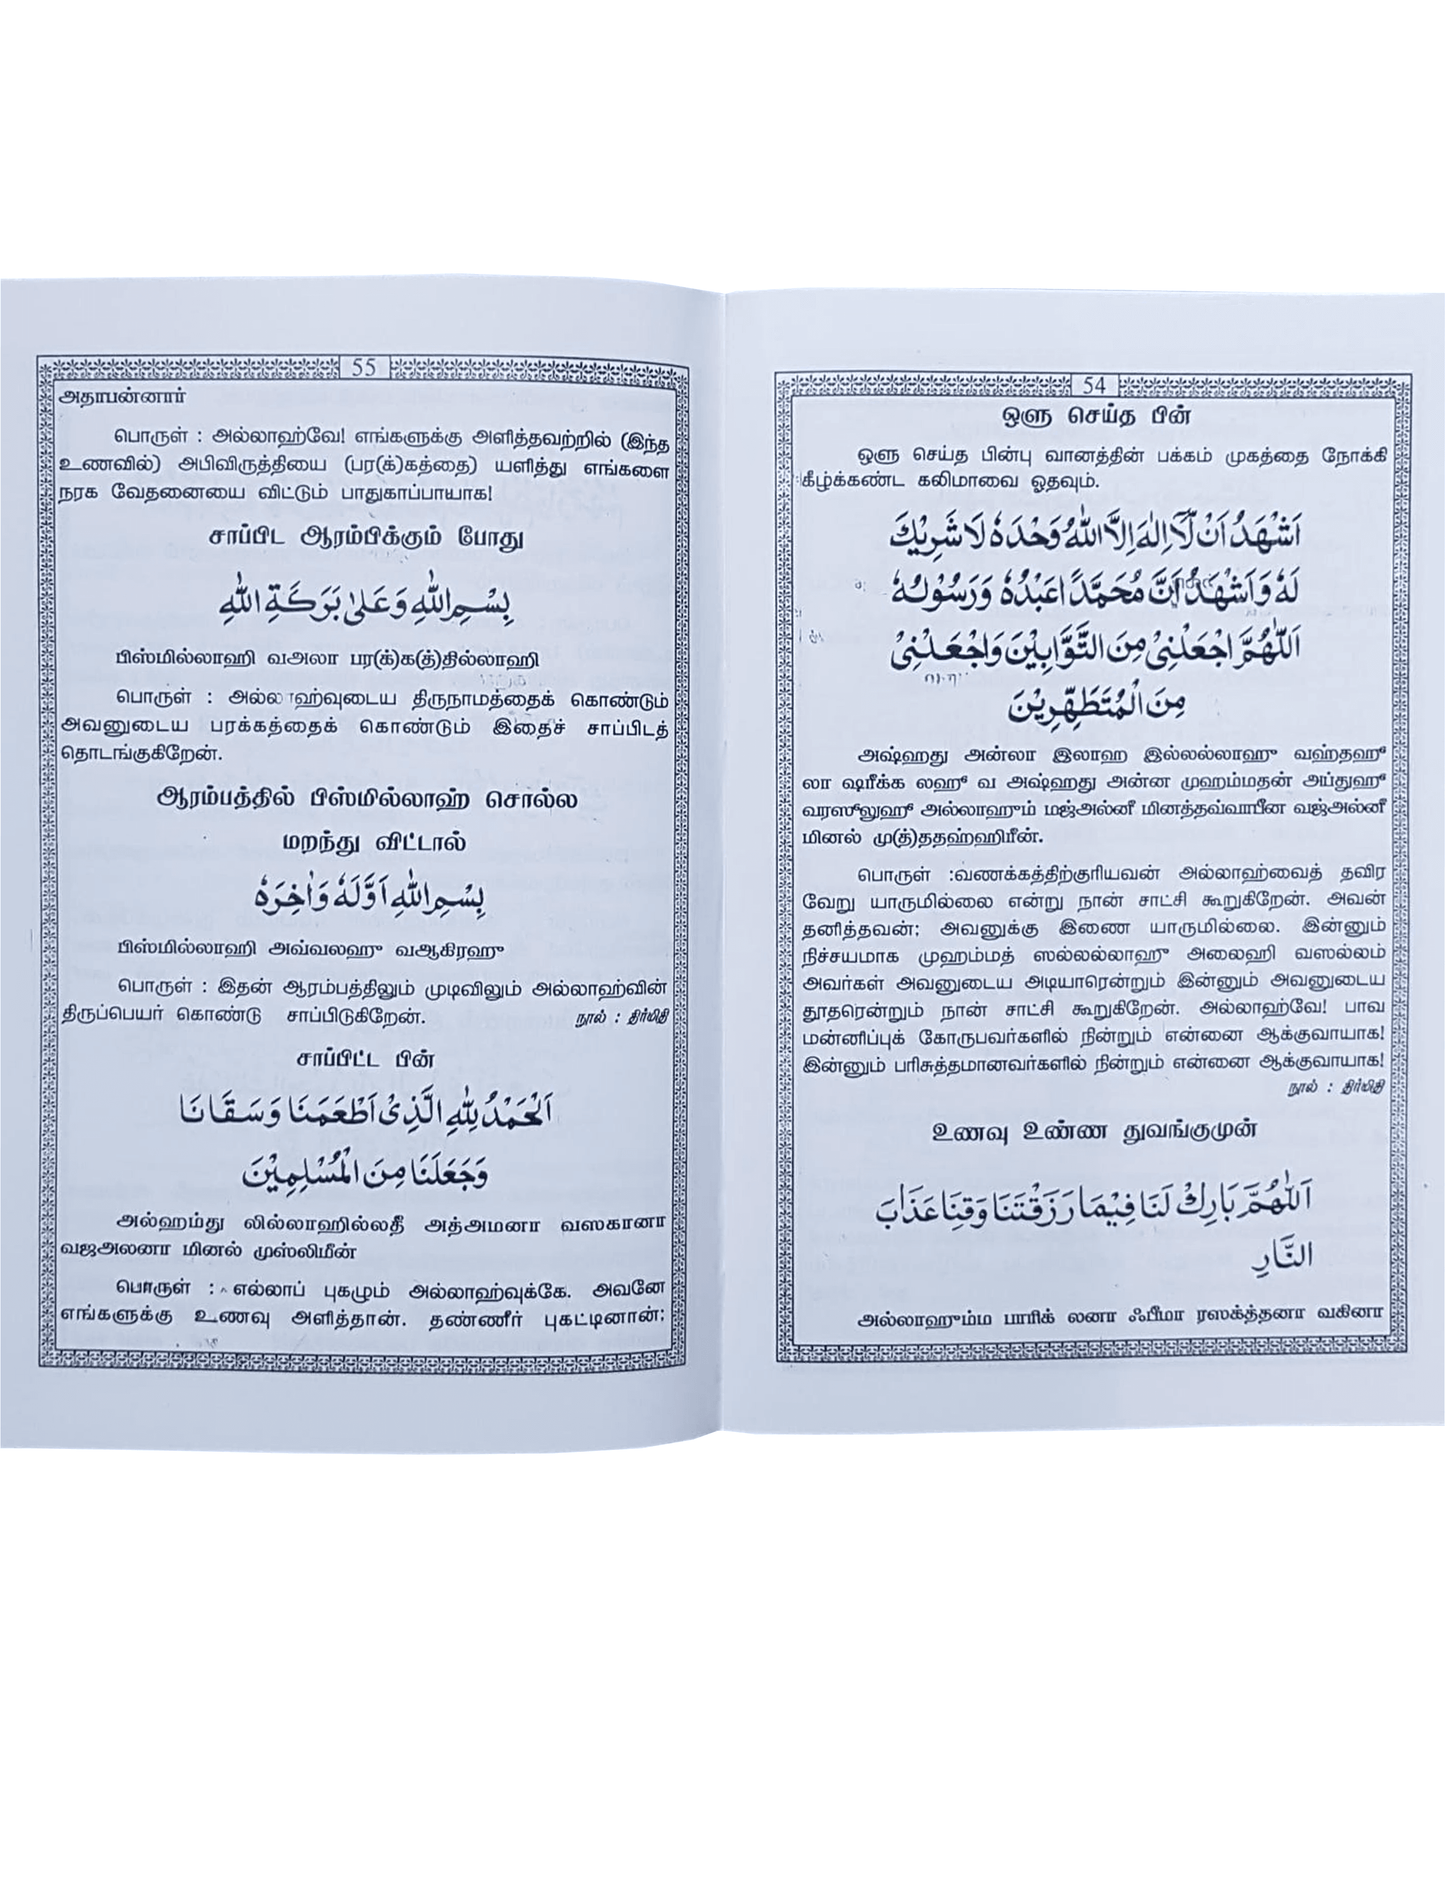 54
ஒளு செய்த பின்
ஒளு செய்த பின்பு வானத்தின் பக்கம் முகத்தை நோக்கி
கீழ்க்கண்ட கலிமாவை ஓதவும்.
اَشْهَدُ اَنْ لَّآ اِلٰهَ اِلَّا اللّٰهُ وَحْدَهٗ لَا شَرِيْكَ
لَهٗ وَاَشْهَدُ اَنَّ مُحَمَّدًا عَبْدُهٗ وَرَسُوْلُهٗ
اَللّٰهُمَّ اجْعَلْنِيْ مِنَ التَّوَّابِيْنَ وَاجْعَلْنِيْ
مِنَ الْمُتَطَهِّرِيْنَ
அஷ்ஹது அன்லா இலாஹ இல்லல்லாஹு வஹ்தஹூ
லா ஷரீக்க லஹூ வ அஷ்ஹது அன்ன முஹம்மதன் அப்துஹூ
வரஸூலுஹூ அல்லாஹும் மஜ்அல்னீ மினத்தவ்வாபீன வஜ்அல்னீ
மினல் மு(த்)ததஹ்ஹிரீன்.
பொருள் :வணக்கத்திற்குரியவன் அல்லாஹ்வைத் தவிர
வேறு யாருமில்லை என்று நான் சாட்சி கூறுகிறேன். அவன்
தனித்தவன்; அவனுக்கு இணை யாருமில்லை. இன்னும்
நிச்சயமாக முஹம்மத் ஸல்லல்லாஹு அலைஹி வஸல்லம்
அவர்கள் அவனுடைய அடியாரென்றும் இன்னும் அவனுடைய
தூதரென்றும் நான் சாட்சி கூறுகிறேன். அல்லாஹ்வே! பாவ
மன்னிப்புக் கோருபவர்களில் நின்றும் என்னை ஆக்குவாயாக!
இன்னும் பரிசுத்தமானவர்களில் நின்றும் என்னை ஆக்குவாயாக!
நூல் : திர்மிதி
உணவு உண்ண துவங்குமுன்
اَللّٰهُمَّ بَارِكْ لَنَا فِيْمَا رَزَقْتَنَا وَقِنَا عَذَابَ
النَّارِ
அல்லாஹும்ம பாரிக் லனா ஃபீமா ரஸக்த்தனா வகினா
55
அதாபன்னார்
பொருள் : அல்லாஹ்வே! எங்களுக்கு அளித்தவற்றில் (இந்த
உணவில்) அபிவிருத்தியை (பர(க்)கத்தை) யளித்து எங்களை
நரக வேதனையை விட்டும் பாதுகாப்பாயாக!
சாப்பிட ஆரம்பிக்கும் போது
بِسْمِ اللّٰهِ وَعَلٰى بَرَكَةِ اللّٰهِ
பிஸ்மில்லாஹி வஅலா பர(க்)க(த்)தில்லாஹி
பொருள் : அல்லாஹ்வுடைய திருநாமத்தைக் கொண்டும்
அவனுடைய பரக்கத்தைக் கொண்டும் இதைச் சாப்பிடத்
தொடங்குகிறேன்.
ஆரம்பத்தில் பிஸ்மில்லாஹ் சொல்ல
மறந்து விட்டால்
بِسْمِ اللّٰهِ اَوَّلَهٗ وَاٰخِرَهٗ
பிஸ்மில்லாஹி அவ்வலஹு வஆகிரஹு
பொருள் : இதன் ஆரம்பத்திலும் முடிவிலும் அல்லாஹ்வின்
திருப்பெயர் கொண்டு சாப்பிடுகிறேன். நூல் : திர்மிதி
சாப்பிட்ட பின்
اَلْحَمْدُ لِلّٰهِ الَّذِيْ اَطْعَمَنَا وَسَقَانَا
وَجَعَلَنَا مِنَ الْمُسْلِمِيْنَ
அல்ஹம்து லில்லாஹில்லதீ அத்அமனா வஸகானா
வஜஅலனா மினல் முஸ்லிமீன்
பொருள் : எல்லாப் புகழும் அல்லாஹ்வுக்கே. அவனே
எங்களுக்கு உணவு அளித்தான். தண்ணீர் புகட்டினான்;